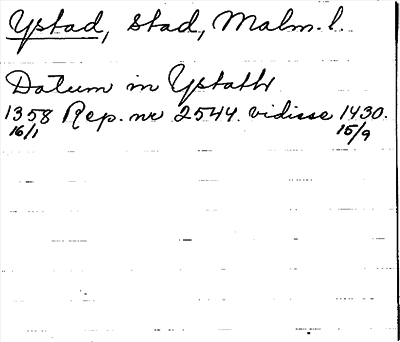 Ystad, stad, Malm. l.
Datum in Ystath
1358 Rep. nr 2544. vidisse 1430.
16/1 15/9